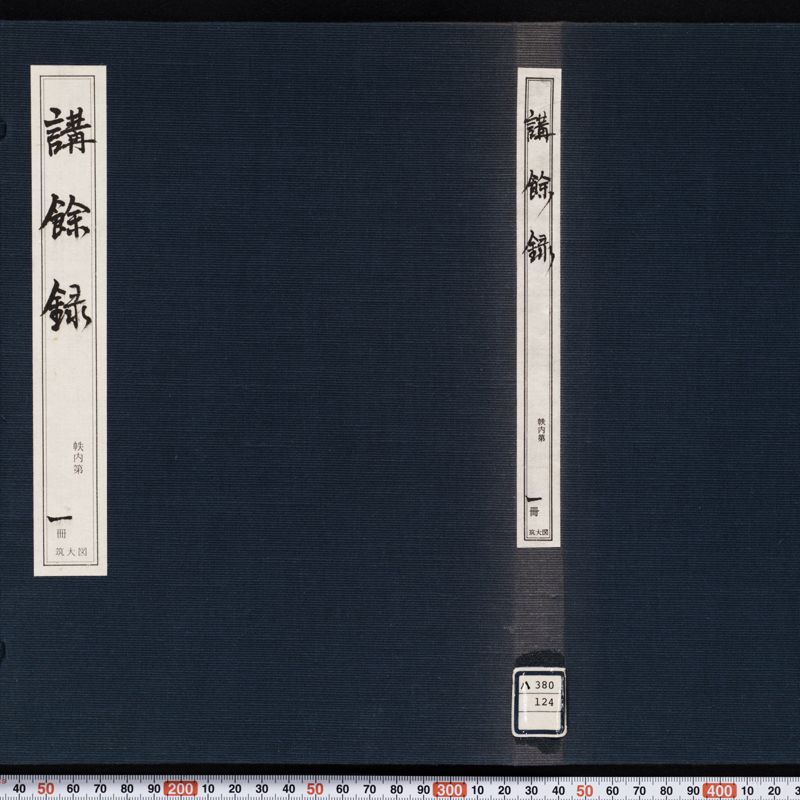 講餘録
帙内第
一冊
筑大図
講餘録
帙内第
一冊
筑大図
ハ 380
124
40 50 60 70 80 90 200 10 20 30 40 50 60 70 80 90 300 10 20 30 40 50 60 70 80 90 400 10 20 3